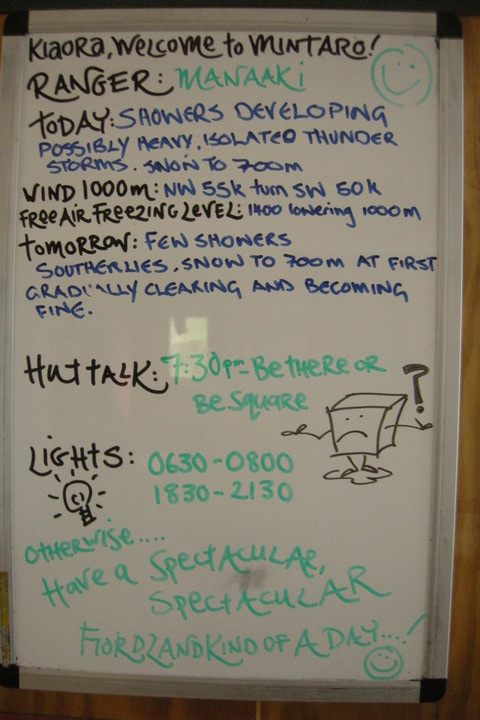 KIAORA, WELCOME TO MINTARO!
RANGER: MANAAKI
TODAY: SHOWERS DEVELOPING
POSSIBLY HEAVY, ISOLATED THUNDER
STORMS. SNOW TO 700m
WIND 1000m: NW 55k turn SW 50k
FREE AIR FREEZING LEVEL: 1400 lowering 1000m
TOMORROW: FEW SHOWERS
SOUTHERLIES, SNOW TO 700m AT FIRST
GRADUALLY CLEARING AND BECOMING
FINE.
HUT TALK: 7:30pm - Be there OR
Be Square
?
LIGHTS: 0630-0800
1830-2130
OTHERWISE....
Have a SPECTACULAR,
SPECTACULAR
FIORDLAND KIND OF A DAY....!